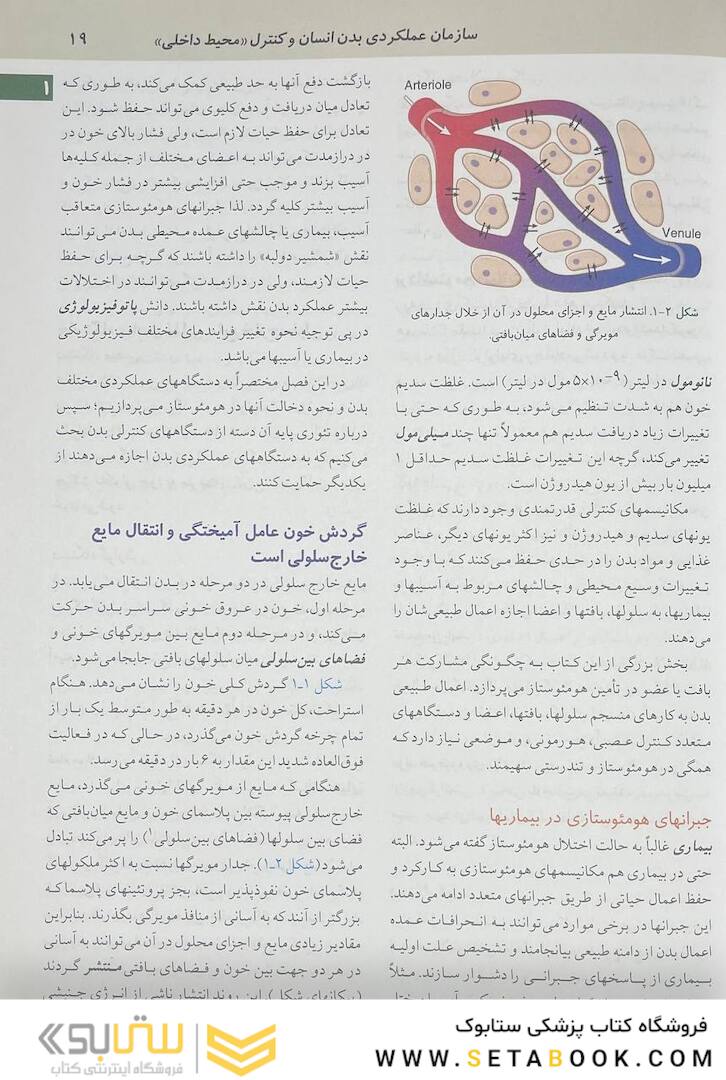 سازمان عملکردی بدن انسان و کنترل «محیط داخلی» ۱۹
۱
Arteriole
Venule
شکل ۲-۱. انتشار مایع و اجزای محلول در آن از خلال جدارهای
مویرگی و فضاهای میان‌بافتی.
نانومول در لیتر (۵×۱۰−۹ مول در لیتر) است. غلظت سدیم
خون هم به شدت تنظیم می‌شود، به طوری که حتی با
تغییرات زیاد دریافت سدیم هم معمولاً تنها چند میلی‌مول
تغییر می‌کند، گرچه این تغییرات غلظت سدیم حداقل ۱
میلیون بار بیش از یون هیدروژن است.
مکانیسمهای کنترلی قدرتمندی وجود دارند که غلظت
یونهای سدیم و هیدروژن و نیز اکثر یونهای دیگر، عناصر
غذایی و مواد بدن را در حدی حفظ می‌کنند که با وجود
تغییرات وسیع محیطی و چالشهای مربوط به آسیبها و
بیماریها، به سلولها، بافتها و اعضا اجازه اعمال طبیعی‌شان را
می‌دهند.
بخش بزرگی از این کتاب به چگونگی مشارکت هر
بافت یا عضو در تأمین هومئوستاز می‌پردازد. اعمال طبیعی
بدن به کارهای منسجم سلولها، بافتها، اعضا و دستگاههای
متعدد کنترل عصبی، هورمونی، و موضعی نیاز دارد که
همگی در هومئوستاز و تندرستی سهیمند.
جبرانهای هومئوستازی در بیماریها
بیماری غالباً به حالت اختلال هومئوستاز گفته می‌شود. البته
حتی در بیماری هم مکانیسمهای هومئوستازی به کارکرد و
حفظ اعمال حیاتی از طریق جبرانهای متعدد ادامه می‌دهند.
این جبرانها در برخی موارد می‌توانند به انحرافات عمده
اعمال بدن از دامنه طبیعی بیانجامند و تشخیص علت اولیه
بیماری از پاسخهای جبرانی را دشوار سازند. مثلاً
بازگشت دفع آنها به حد طبیعی کمک می‌کند، به طوری که
تعادل میان دریافت و دفع کلیوی می‌تواند حفظ شود. این
تعادل برای حفظ حیات لازم است، ولی فشار بالای خون در
در درازمدت می‌تواند به اعضای مختلف از جمله کلیه‌ها
آسیب بزند و موجب حتی افزایشی بیشتر در فشار خون و
آسیب بیشتر کلیه گردد. لذا جبرانهای هومئوستازی متعاقب
آسیب، بیماری یا چالشهای عمده محیطی بدن می‌توانند
نقش «شمشیر دولبه» را داشته باشند که گرچه برای حفظ
حیات لازمند، ولی در درازمدت می‌توانند در اختلالات
بیشتر عملکرد بدن نقش داشته باشند. دانش پاتوفیزیولوژی
در پی توجیه نحوه تغییر فرایندهای مختلف فیزیولوژیکی
در بیماری یا آسیبها می‌باشد.
در این فصل مختصراً به دستگاههای عملکردی مختلف
بدن و نحوه دخالت آنها در هومئوستاز می‌پردازیم؛ سپس
درباره تئوری پایه آن دسته از دستگاههای کنترلی بدن بحث
می‌کنیم که به دستگاههای عملکردی بدن اجازه می‌دهند از
یکدیگر حمایت کنند.
گردش خون عامل آمیختگی و انتقال مایع
خارج‌سلولی است
مایع خارج سلولی در دو مرحله در بدن انتقال می‌یابد. در
مرحله اول، خون در عروق خونی سراسر بدن حرکت
می‌کند، و در مرحله دوم مایع بین مویرگهای خونی و
فضاهای بین‌سلولی میان سلولهای بافتی جابجا می‌شود.
شکل ۱-۱ گردش کلی خون را نشان می‌دهد. هنگام
استراحت، کل خون در هر دقیقه به طور متوسط یک بار از
تمام چرخه گردش خون می‌گذرد، در حالی که در فعالیت
فوق‌العاده شدید این مقدار به ۶ بار در دقیقه می‌رسد.
هنگامی که مایع از مویرگهای خونی می‌گذرد، مایع
خارج‌سلولی پیوسته بین پلاسمای خون و مایع میان‌بافتی که
فضای بین سلولها (فضاهای بین‌سلولی۱) را پر می‌کند تبادل
می‌شود (شکل ۲-۱). جدار مویرگها نسبت به اکثر ملکولهای
پلاسمای خون نفوذپذیر است، بجز پروتئینهای پلاسما که
بزرگتر از آنند که به آسانی از منافذ مویرگی بگذرند. بنابراین
مقادیر زیادی مایع و اجزای محلول در آن می‌توانند به آسانی
در هر دو جهت بین خون و فضاهای بافتی منتشر گردند
(پیکانهای شکل). این روند انتشار ناشی از انرژی جنبشی
فروشگاه کتاب پزشکی ستابوک
WWW.SETABOOK.COM
ستابوک
فروشگاه اینترنتی کتاب